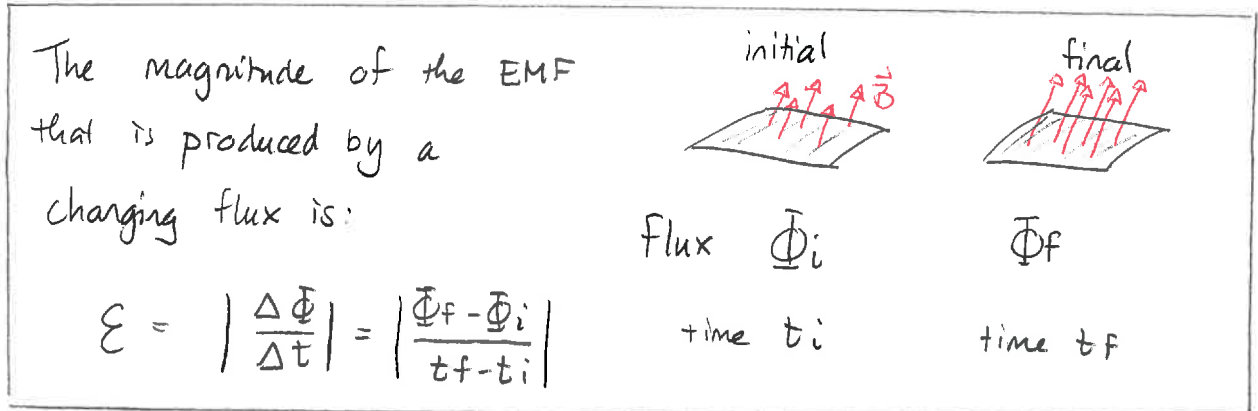 The magnitude of the EMF
that is produced by a
changing flux is:
ℰ = | ΔΦ / Δt | = | Φf - Φi / tf - ti |
initial
final
B⃗
flux Φi Φf
time ti time tf